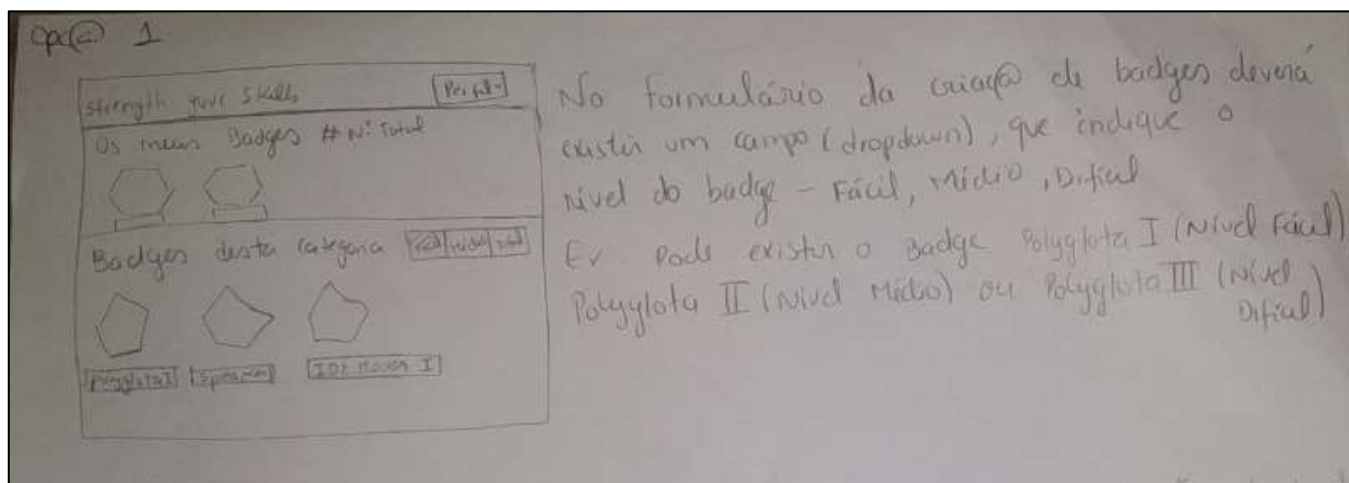 Opçã 1
Strength your Skills
Perfil
Os meus Badges # Nº Total
Badges desta categoria
Polyglota I
IDE Maven I
No formulário da criaçã de badges deverá
existir um campo (dropdown), que indique o
nível do badge - Fácil, Médio, Difícil
Ex Pode existir o Badge Polyglota I (Nível Fácil)
Polyglota II (Nível Médio) ou Polyglota III (Nível
Difícil)